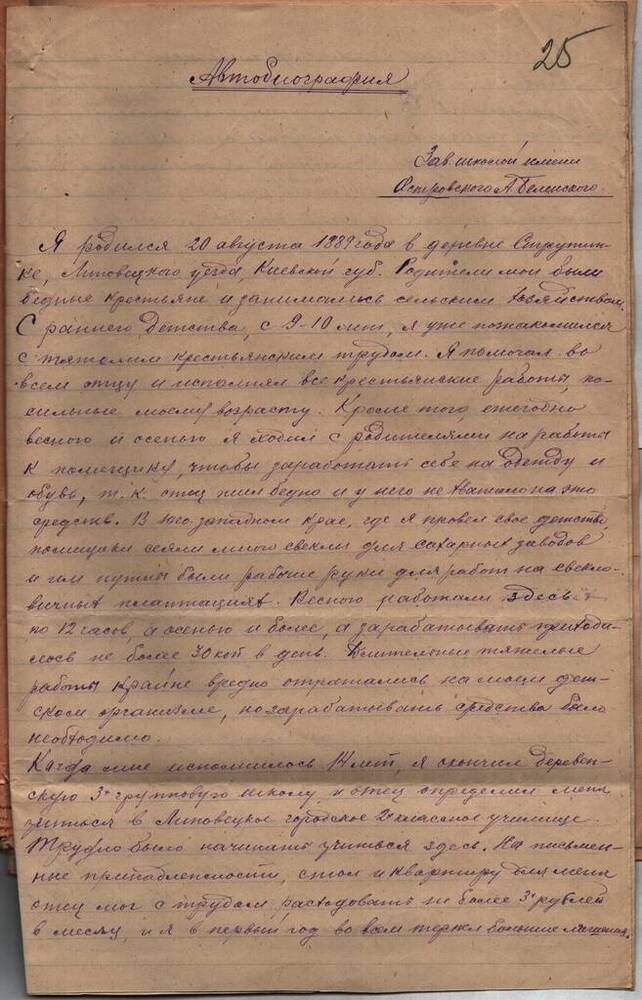 25
Автобиография
Зав. школой имени
Островского А. Белинского.
Я родился 20 августа 1889 года в деревне Струтин-
ке, Липовецкого уезда, Киевской губ. Родители мои были
бедные крестьяне и занимались сельским хозяйством.
С раннего детства, с 9-10 лет, я уже познакомился
с тяжолим крестьянским трудом. Я помогал во
всем отцу и исполнял все крестьянские работы, по-
сильные моему возрасту. Кроме того ежегодно
весною и осенью я ходил с родителями на работы
к помещику, чтобы заработать себе на одежду и
обувь, т. к. отец жил бедно и у него не хватало на это
средств. В юго западном крае, где я провел свое детство,
помещики сеяли много свеклы для сахарных заводов
и им нужны были рабочие руки для работ на свекло-
вичных плантациях. Весною работали здесь
по 12 часов, а осенью и более, а зарабатывать приходи-
лось не более 30 коп в день. Длительные тяжелые
работы крайне вредно отражались на моем дет-
ском организме, но зарабатывать средства было
необходимо.
Когда мне исполнилось 14 лет, я окончил деревен-
скую 3х групповую школу и отец определил меня
учиться в Липовецкое городское 2х классное училище.
Трудно было начинать учиться здесь. На письмен-
ные принадлежности, стол и квартиру для меня
отец мог с трудом расходовать не более 3х рублей
в месяц, и я в первый год во всем терпел большие лишения.